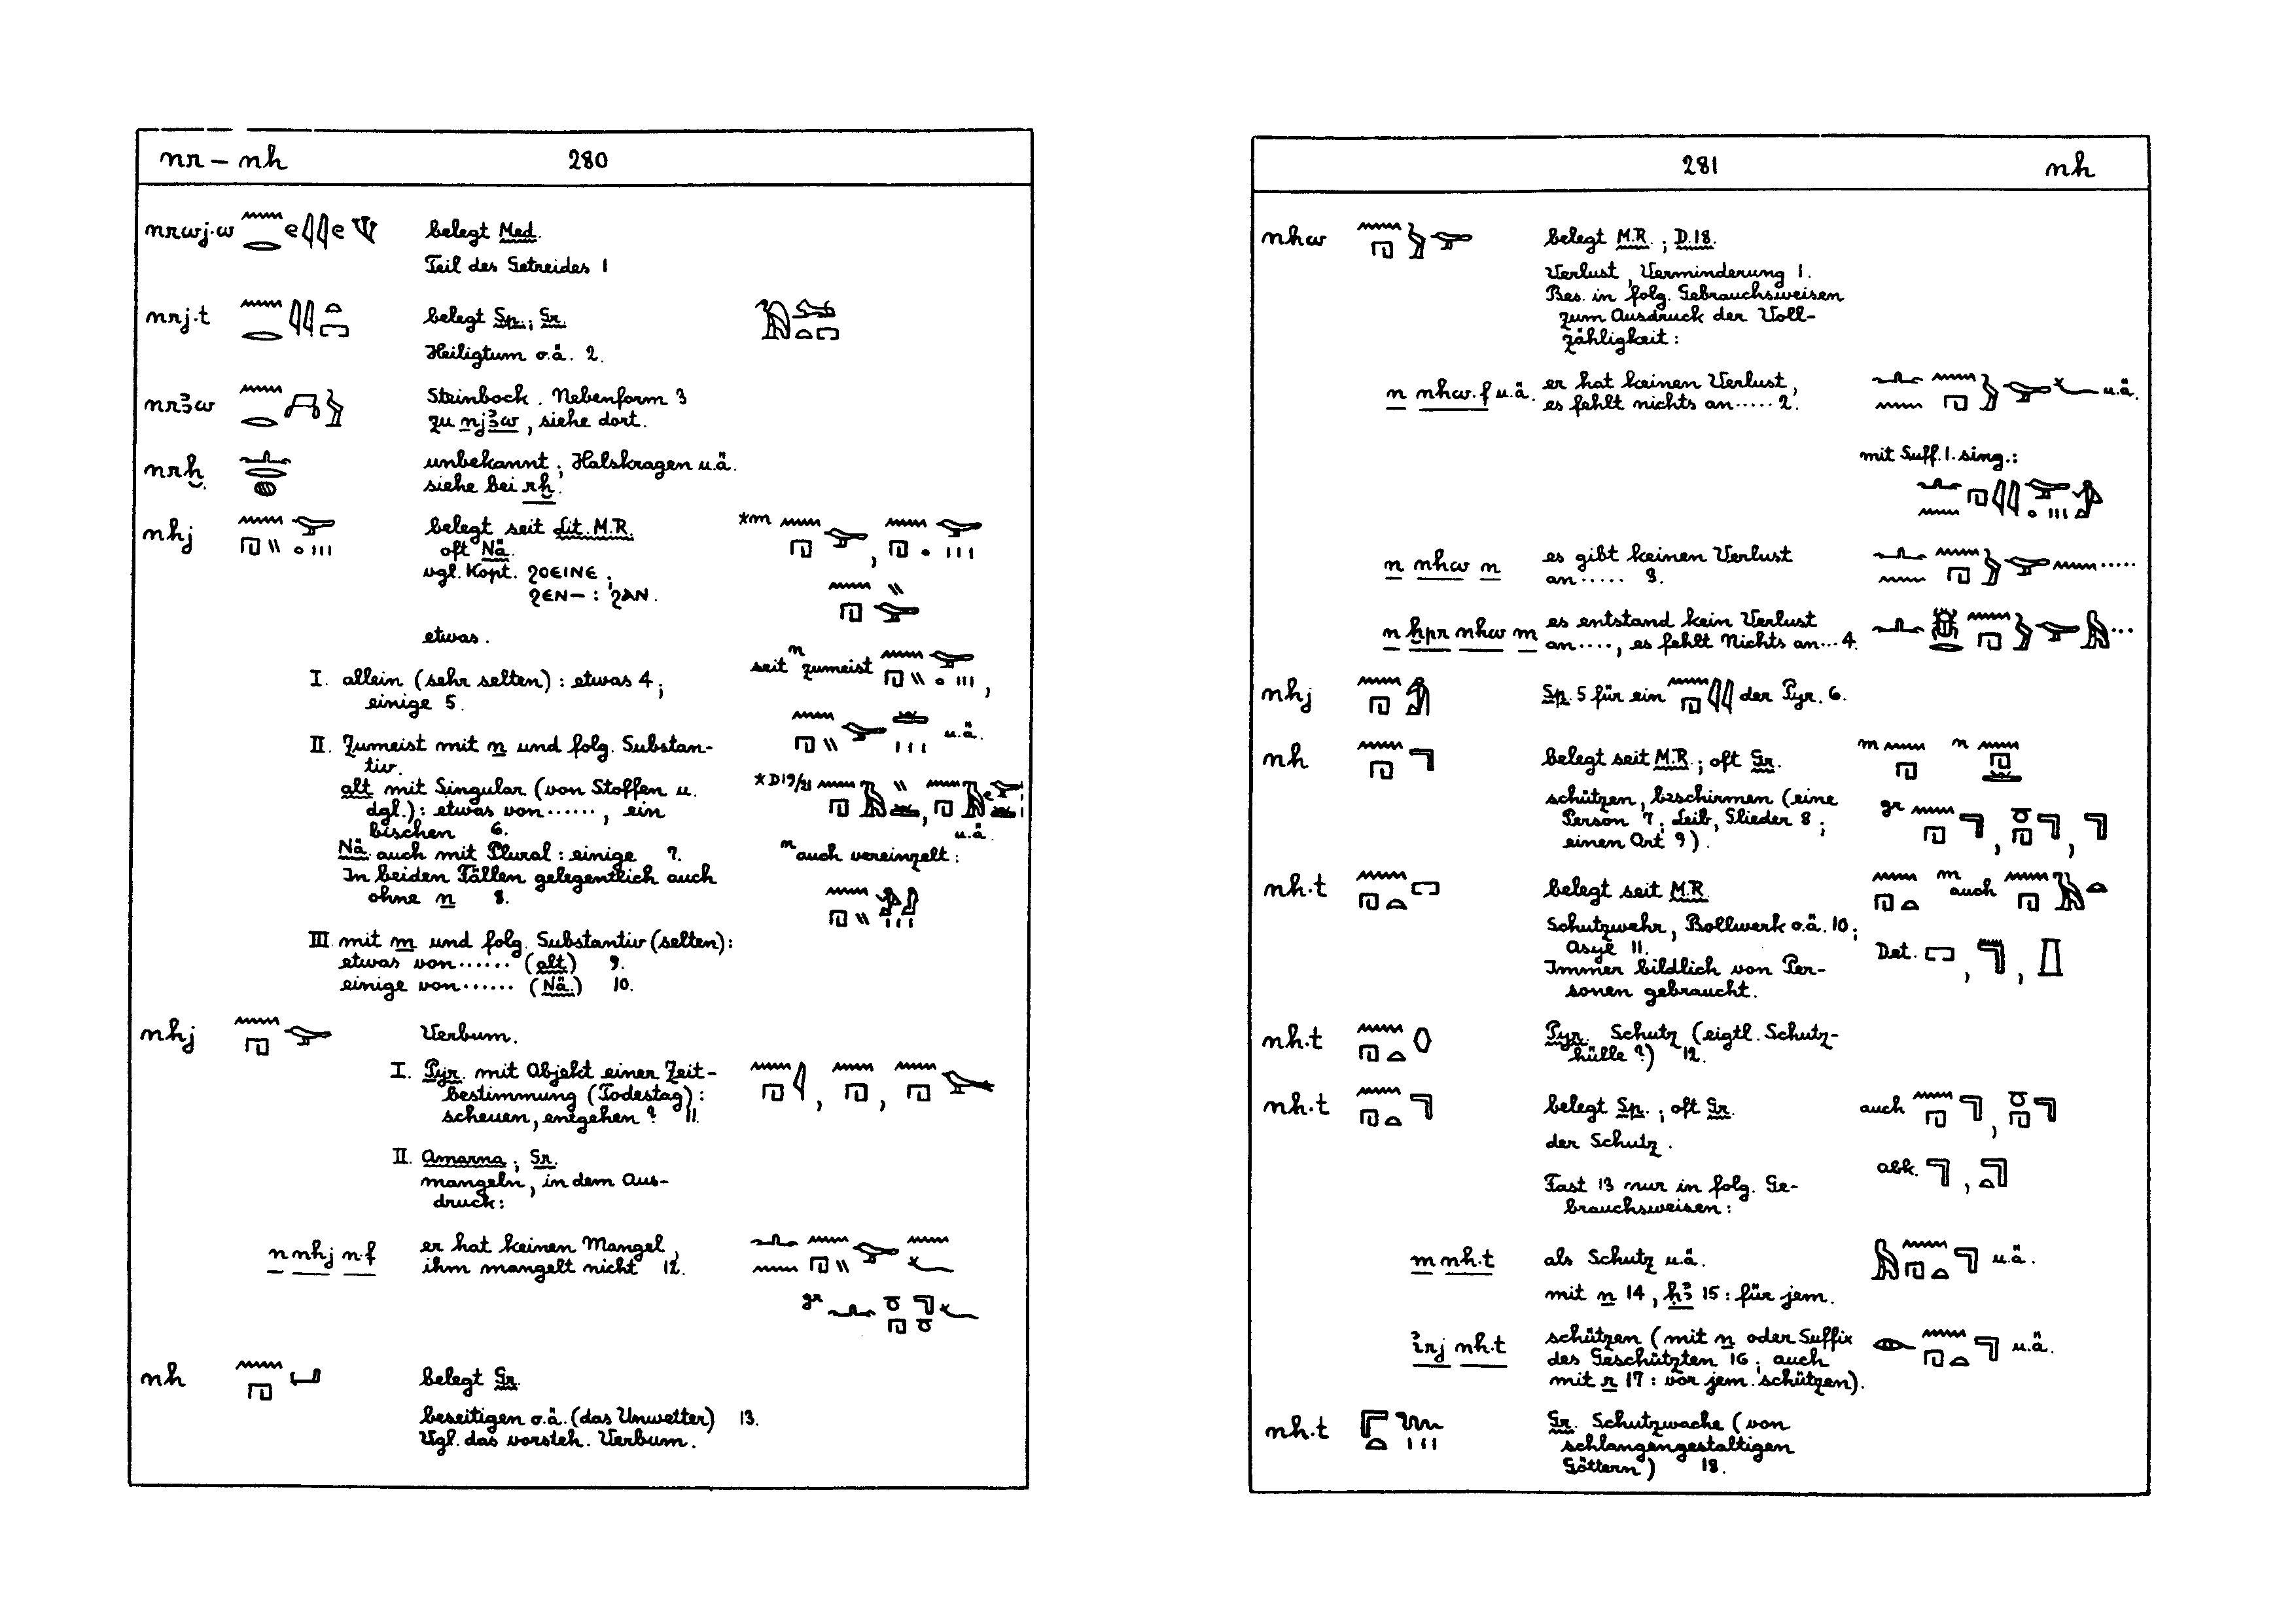 nr – nh 280
nrwj·w belegt Med.
Teil des Getreides 1
nrj·t belegt Sp.; Gr.
Heiligtum o.ä. 2.
nrꜣw Steinbock. Nebenform 3
zu njꜣw, siehe dort.
nrḫ unbekannt; Halskragen u.ä.
siehe bei rḫ.
nhj belegt seit Lit. M.R. *m
oft Nä.
vgl. Kopt. ϩⲟⲉⲓⲛⲉ;
ϩⲉⲛ– : ϩⲁⲛ.
etwas.
seit n zumeist
I. allein (sehr selten): etwas 4;
einige 5.
u.ä.
II. Zumeist mit n und folg. Substan-
tiv.
alt mit Singular (von Stoffen u. *D19/21
dgl.): etwas von ......, ein
bischen 6. u.ä.
Nä. auch mit Plural: einige 7. n auch vereinzelt:
In beiden Fällen gelegentlich auch
ohne n 8.
III. mit m und folg. Substantiv (selten):
etwas von ...... (alt) 9.
einige von ...... (Nä.) 10.
nhj Verbum.
I. Pyr. mit Objekt einer Zeit-
bestimmung (Todestag):
scheuen, entgehen? 11.
II. Amarna; Gr.
mangeln, in dem Aus-
druck:
n nhj n·f er hat keinen Mangel,
ihm mangelt nicht 12.
gr
nh belegt Gr.
beseitigen o.ä. (das Unwetter) 13.
Vgl. das vorsteh. Verbum.
281 nh
nhw belegt M.R.; D.18.
Verlust, Verminderung 1.
Bes. in folg. Gebrauchsweisen
zum Ausdruck der Voll-
zähligkeit:
n nhw·f u.ä. er hat keinen Verlust, u.ä.
es fehlt nichts an ..... 2.
mit Suff. 1. sing.:
n nhw n es gibt keinen Verlust .....
an ..... 3.
n ḫpr nhw m es entstand kein Verlust ...
an ...., es fehlt Nichts an ... 4.
nhj Sp. 5 für ein der Pyr. 6.
nh belegt seit M.R.; oft Gr. m n
schützen, beschirmen (eine gr
Person 7; Leib, Glieder 8;
einen Ort 9).
nh·t belegt seit M.R. m auch
Schutzwehr, Bollwerk o.ä. 10;
Asyl 11. Det.
Immer bildlich von Per-
sonen gebraucht.
nh·t Pyr. Schutz (eigtl. Schutz-
hülle?) 12.
nh·t belegt Sp.; oft Gr. auch
der Schutz.
abk.
Fast 13 nur in folg. Ge-
brauchsweisen:
m nh·t als Schutz u.ä. u.ä.
mit n 14, ḥꜣ 15: für jem.
irj nh·t schützen (mit n oder Suffix u.ä.
des Geschützten 16; auch
mit r 17: vor jem. schützen).
nh·t Gr. Schutzwache (von
schlangengestaltigen
Göttern) 18.